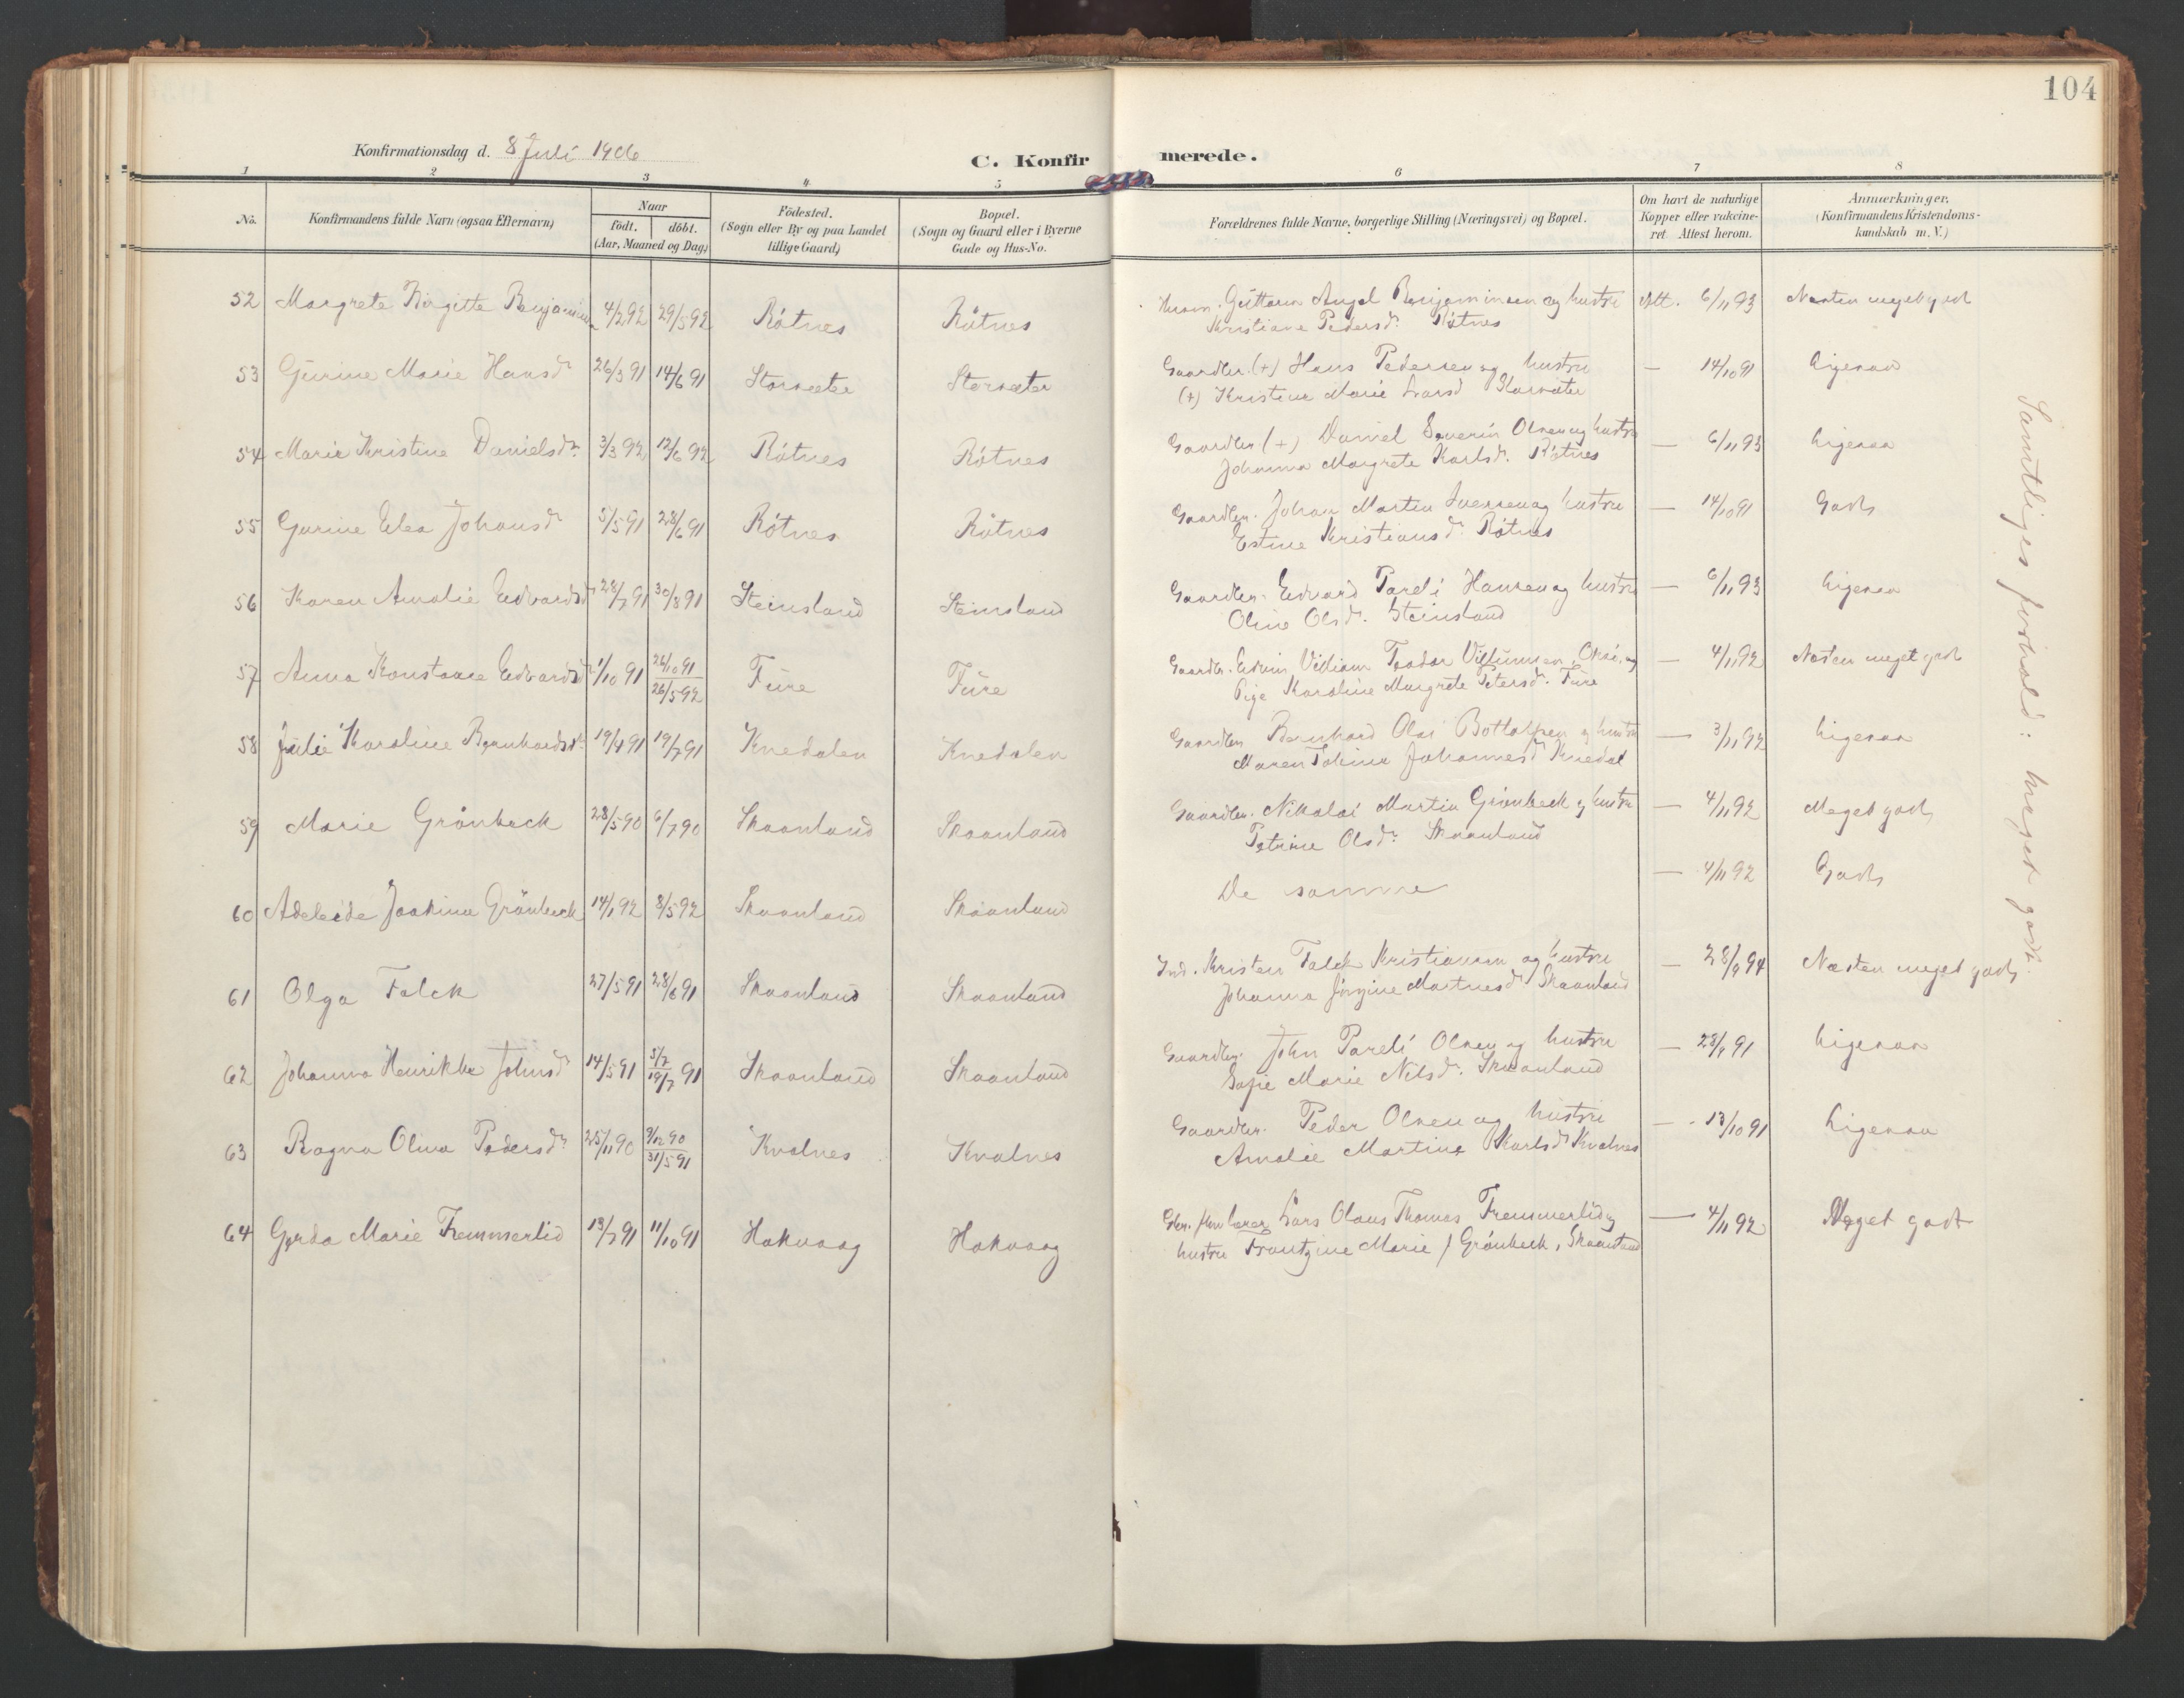 104
Konfirmationsdag d. 8 Juli 1906
C. Konfirmerede.
1 2 3 4 5 6 7 8
No. Konfirmandens fulde Navn (ogsaa Efternavn) Naar födt. döbt. (Aar, Maaned og Dag) Födested. (Sogn eller By og paa Landet tillige Gaard) Bopæl. (Sogn og Gaard eller i Byerne Gade og Hus-No. Forældrenes fulde Navne, borgerlige Stilling (Næringsvei) og Bopæl. Om havt de naturlige Kopper eller vaccineret Attest herom. Anmærkninger. (Konfirmandens Kristendomskundskab m. V.)
52 Margrete Birgitte Benjamins 4/2 92 29/5 92 Rötnes Rötnes Guttorm Angel Benjaminsen og hustru Att. 6/11 93 Næsten meget godt
Kristiane Pedersdr. Rötnes
53 Gurine Marie Hansdr 26/3 91 14/6 91 Storsæter Storsæter Gaardbr. (+) Hans Pedersen og hustru — 14/10 91 Ligesaa
(+) Kristine Marie Larsd Storsæter
54 Marie Kristine Danielsdr. 3/3 92 12/6 92 Rötnes Rötnes Gaardbr. (+) Daniel Severin Olsen og hustru — 6/11 93 Ligesaa
Johanna Margrete Karlsdr. Rötnes
55 Gurine Elea Johansdr 5/5 91 28/6 91 Rötnes Rötnes Gaardbr. Johan Morten Iversen og hustru — 14/10 91 Godt
Estine Kristiansdr. Rötnes
56 Karen Amalie Edvardsdr 28/7 91 30/8 91 Steinsland Steinsland Gaardbr. Edvard Pareli Hansen og hustru — 6/11 93 Ligesaa
Oline Olsdr. Steinsland
57 Anna Konstanse Edvardsdr 1/10 91 26/10 91 26/5 92 Fure Fure Gaardbr. Edvin Villiam Teodor og — 4/11 92 Næsten meget godt
Pige Karoline Margrete Petersdr. Fure
58 Julie Karoline Bernhardsdr. 19/4 91 19/7 91 Knedalen Knedalen Gaardbr. Bernhard Olai Bottolfsen og hustru — 3/11 92 Ligesaa
Maren Tomine Johannesdr Knedal
59 Marie Grönbeck 28/5 90 6/7 90 Skaanland Skaanland Gaardbr. Nikolai Martin Grönbeck og hustru — 4/11 92 Meget godt
Petrine Olsdr. Skaanland
60 Adeleide Joakina Grönbeck 14/1 92 8/5 92 Skaanland Skaanland De samme — 4/11 92 Godt
61 Olga Falck 27/5 91 28/6 91 Skaanland Skaanland Ind. Kristen Falck Kristiansen og hustru — 28/9 94 Næsten meget godt
Johanna Jörgine Martinesdr Skaanland
62 Johanna Henrikke Johnsd 14/5 91 5/7 19/7 91 Skaanland Skaanland Gaardbr. John Pareli Olsen og hustru — 28/9 91 Ligesaa
Sofie Marie Nilsdr. Skaanland
63 Ragna Olina Pedersdr 25/11 90 3/12 90 31/5 91 Kvalnes Kvalnes Gaardbr. Peder Olsen og hustru — 13/10 91 Ligesaa
Amalie Martine Karlsdr Kvalnes
64 Gerda Marie Fremmerlid 13/7 91 11/10 91 Hakvaag Hakvaag Lars Olaus Thomas Fremmerlid og — 4/11 92 Meget godt
hustru Frantzine Marie f Grönbeck, Skaanland
Samtliges forhold: meget godt.